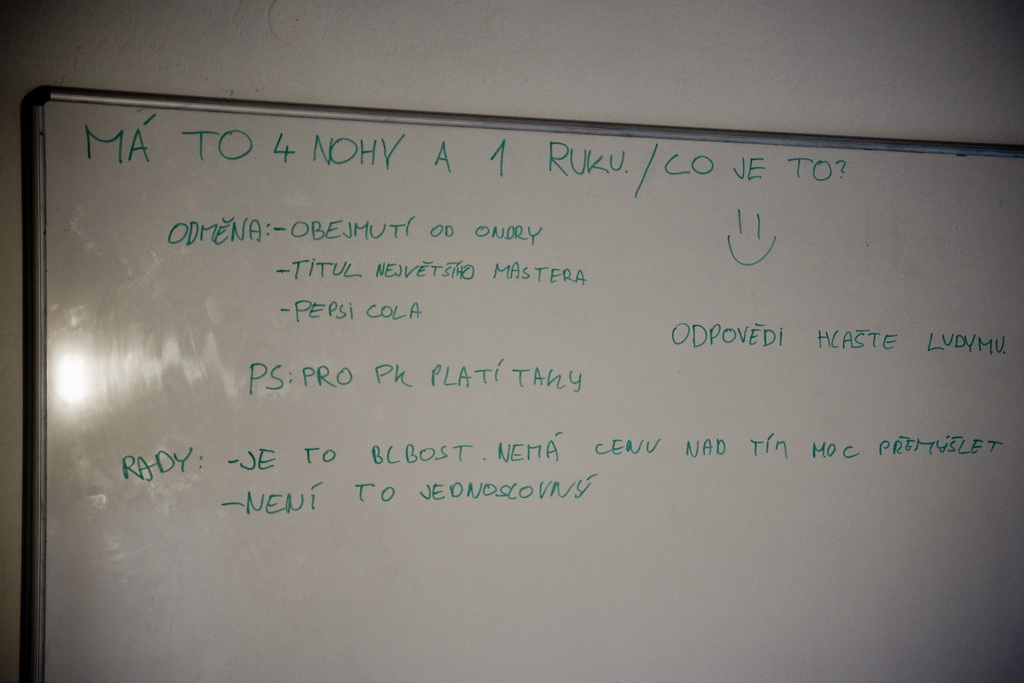 MÁ TO 4 NOHY A 1 RUKU. / CO JE TO?
ODMĚNA: - OBEJMUTÍ OD ONDRY
- TITUL NEJVĚTŠÍHO MASTERA
- PEPSI COLA
ODPOVĚDI HLAŠTE LUDYMU.
PS: PRO PK PLATÍ TAKY
RADY: - JE TO BLBOST. NEMÁ CENU NAD TÍM MOC PŘEMÝŠLET
- NENÍ TO JEDNOSLOVNÝ